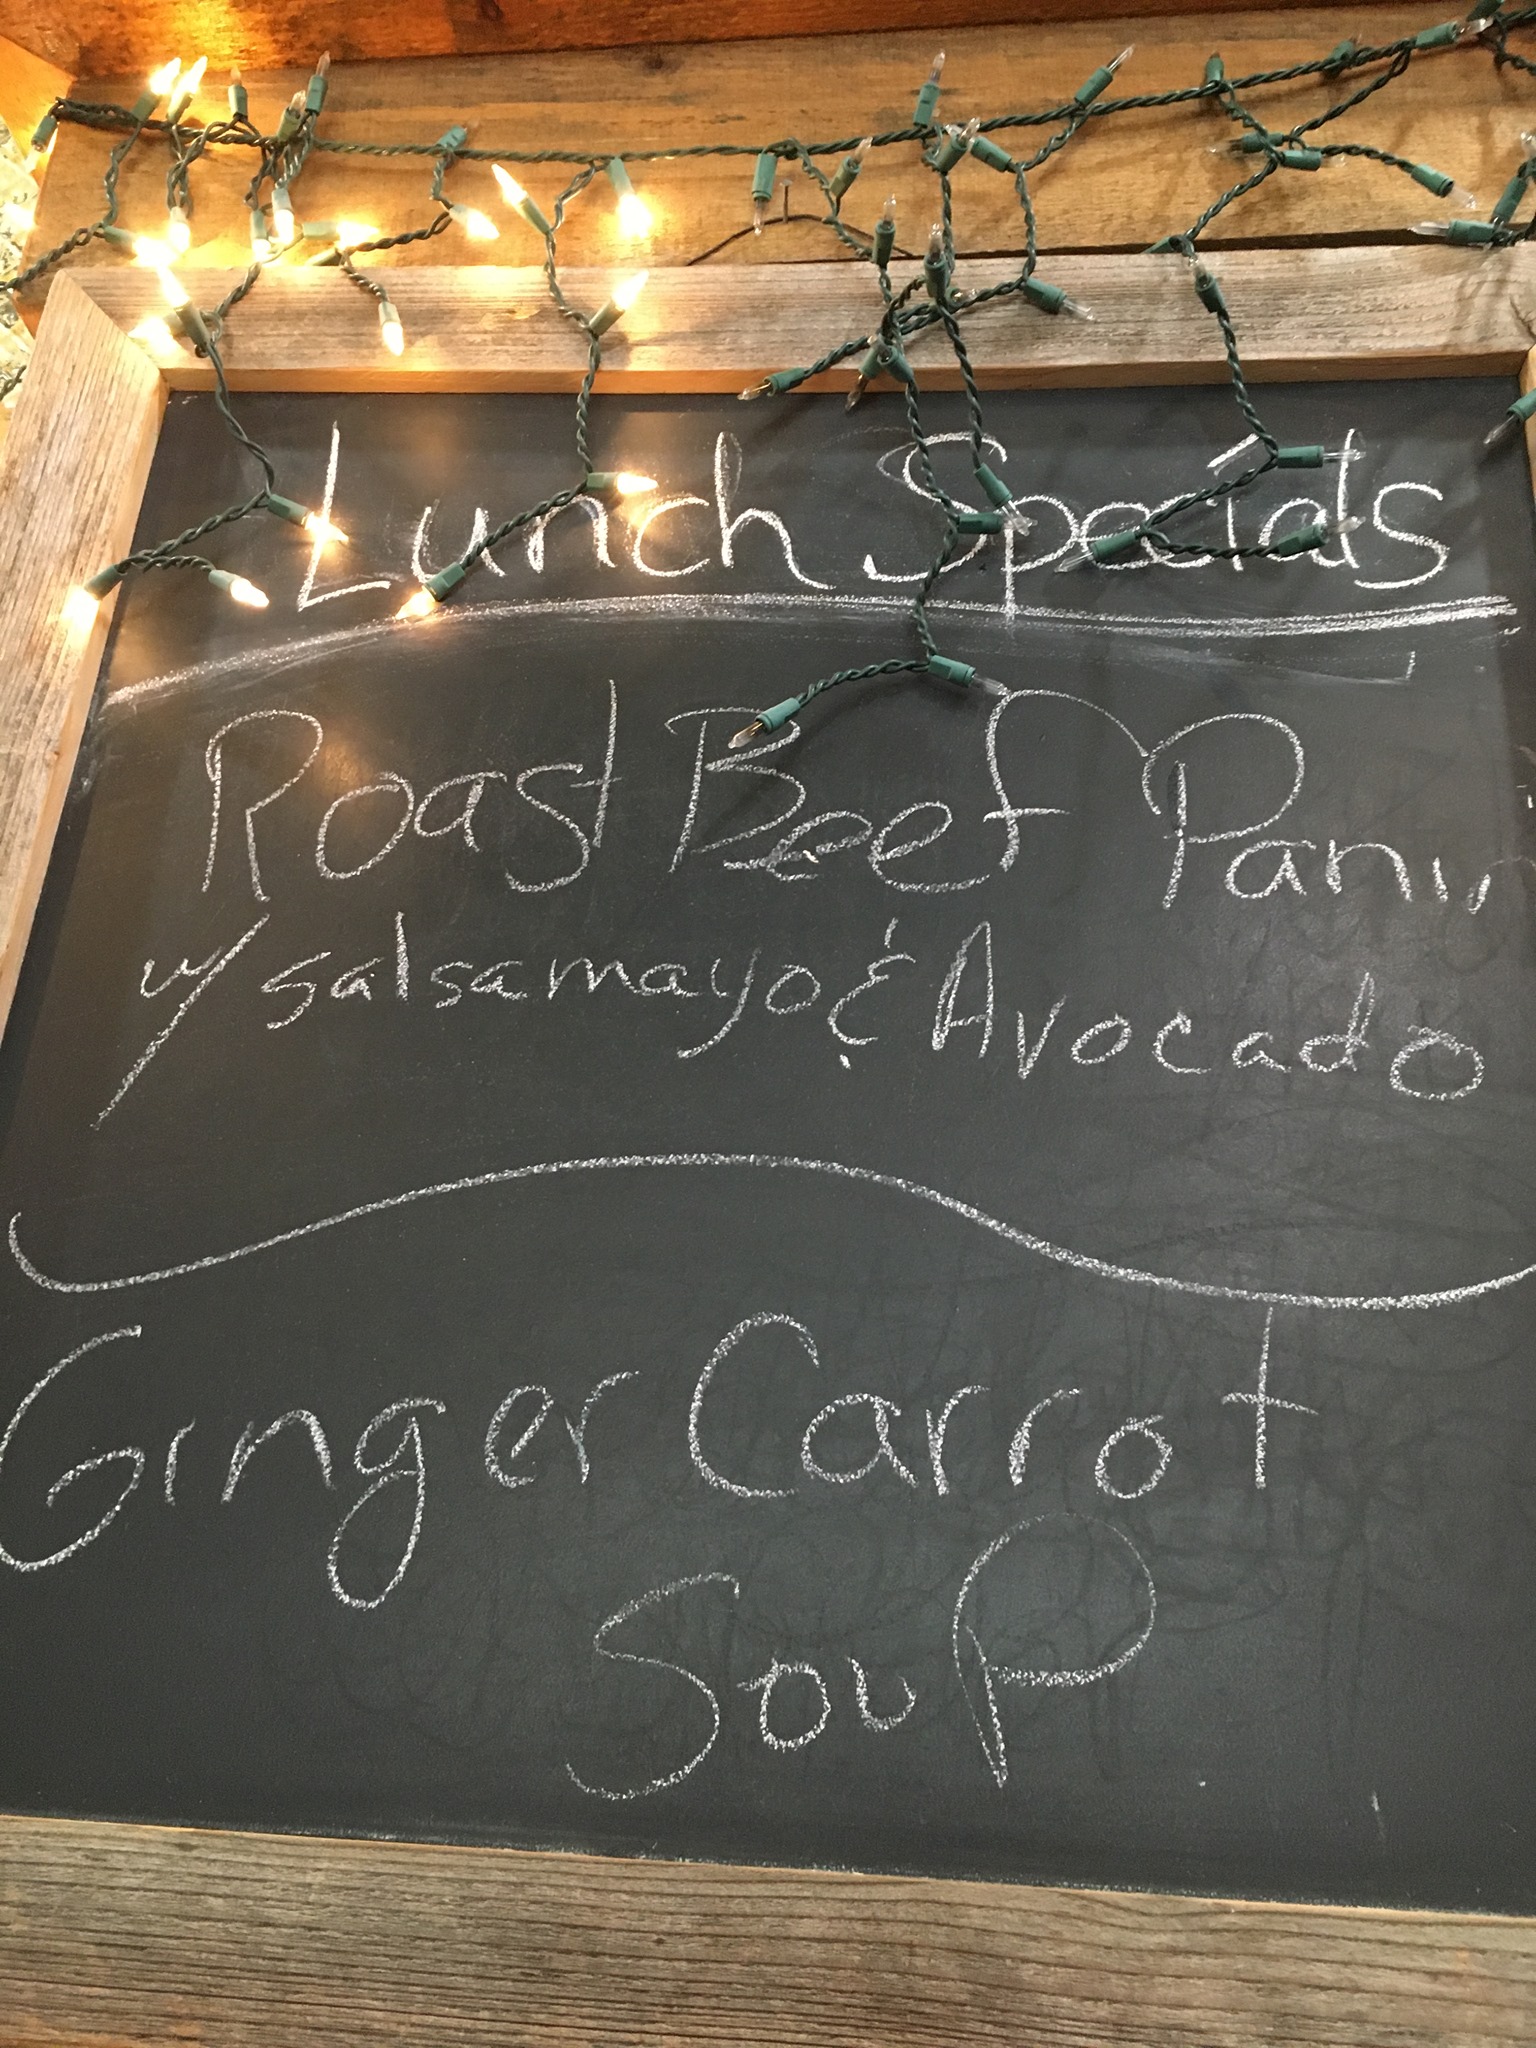 Lunch Specials
Roast Beef Panii
w/ salsamayo & Avocado
Ginger Carrot
Soup